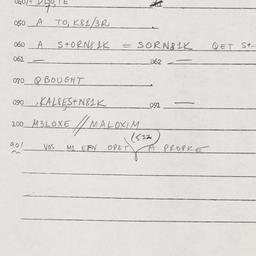 050 A TO, K81/3R
060 A S+ORN81K = SORN81K QET S+
061 — 062 —
070 QBOUGHT
090 ,KAL8ES+N81K 091 —
100 M3LOXE // MALOXIM
901 VOS M1 EFN OPET (532) A PROPKE